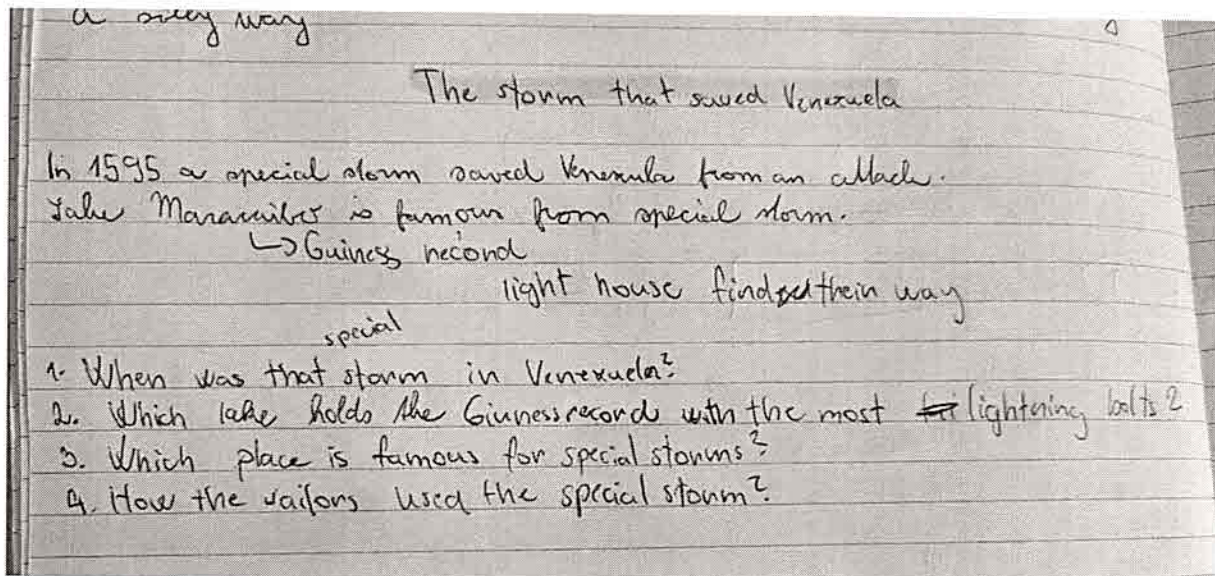 a silly way
The storm that saved Venezuela
In 1595 a special storm saved Venezuela from an attack.
Lake Maracaibo is famous from special storm.
↳ Guiness record
light house find their way
special
1. When was that storm in Venezuela?
2. Which lake holds the Giuness record with the most lightning bolts?
3. Which place is famous for special storms?
4. How the sailors used the special storm?